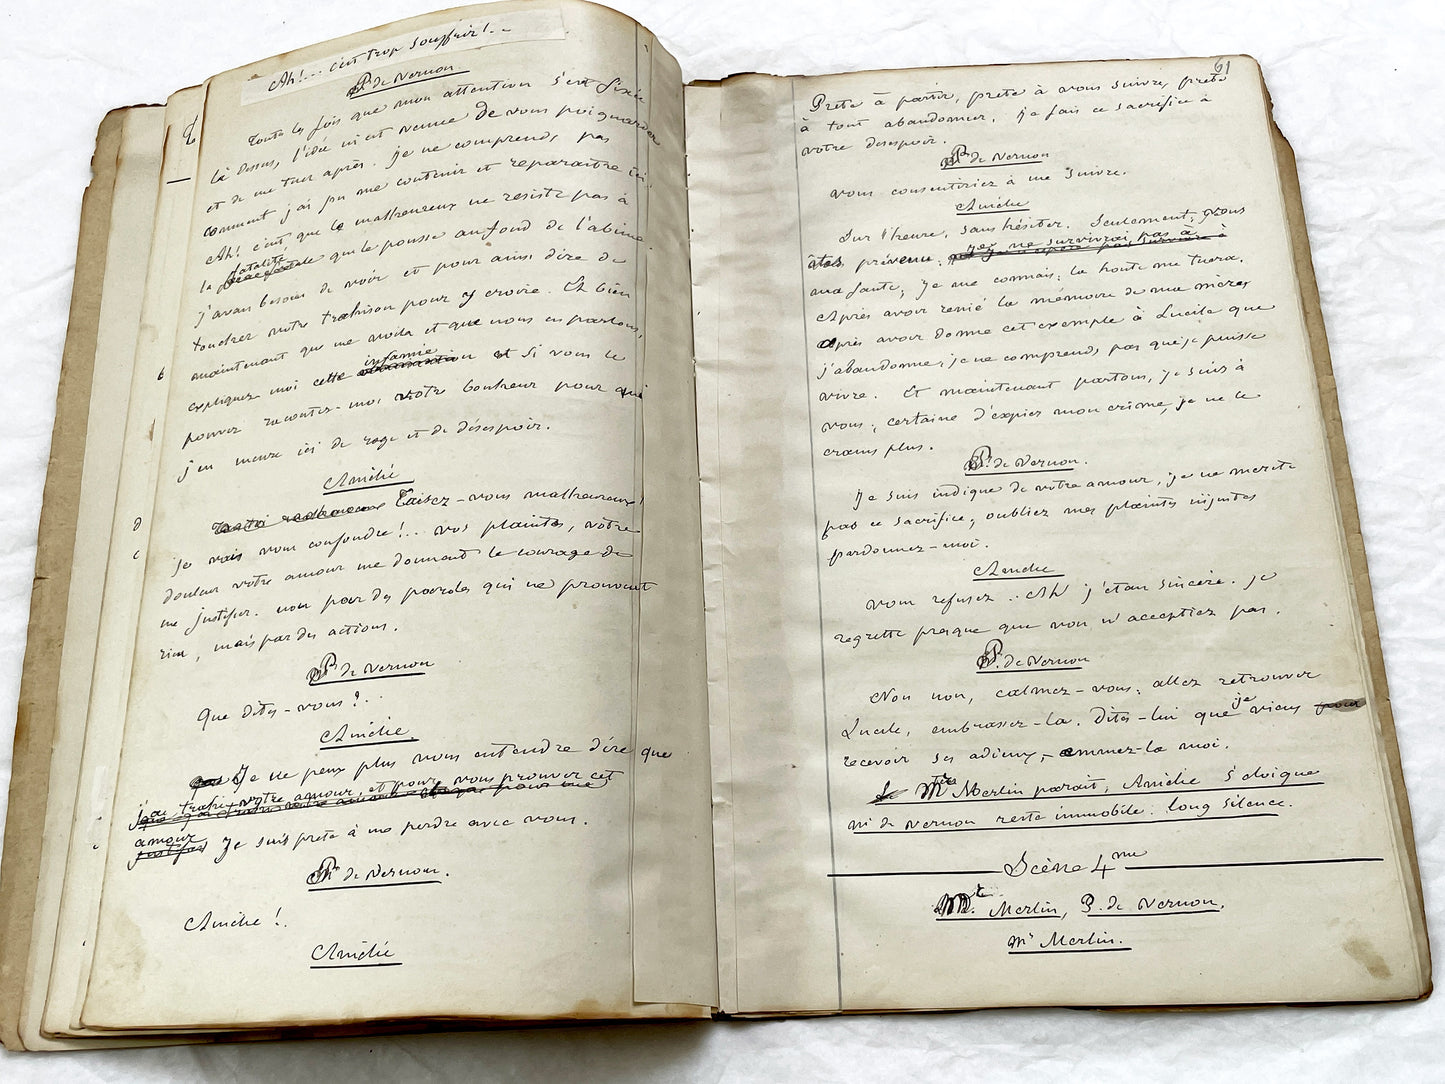 Ah!... c'est trop souffrir!..
P. de Vernon.
Toutes les fois que mon attention s'est fixée
là dessus, l'idée m'est venue de vous poignarder
et de me tuer après. je ne comprends pas
comment j'ai pu me contenir et reparaitre ici.
Ah! c'est que le malheureux ne resiste pas à
la fatalité qui le pousse au fond de l'abime.
j'avais besoin de voir et pour ainsi dire de
toucher votre trahison pour y croire. Eh bien
maintenant que me voila et que nous en parlons,
expliquez moi cette infamie et si vous le
pouvez racontez-moi votre bonheur pour que
j'en meure ici de rage et de désespoir.
Amélie
Taisez-vous malheureux!
je vais vous confondre!... vos plaintes, votre
douleur votre amour me donnent le courage de
me justifier. non par des paroles qui ne prouvent
rien, mais par des actions.
P. de Vernon
Que dites-vous?.
Amélie.
Je ne peux plus vous entendre dire que
j'ai trahi votre amour, et pour vous prouver cet
amour je suis prete à me perdre avec vous.
P. de Vernon.
Amélie!.
Amélie
61
Prete à partir, prete à vous suivre, prete
à tout abandonner. je fais ce sacrifice à
votre desespoir.
P. de Vernon
vous consentiriez à me suivre.
Amélie
Sur l'heure, sans hésiter. Seulement, vous
êtes prévenu. je ne survivrai pas à
ma faute; je me connais; la honte me tuera.
Après avoir renié la mémoire de ma mère,
après avoir donné cet exemple à Lucile que
j'abandonne, je ne comprends pas que je puisse
vivre. Et maintenant partons, je suis à
vous; certaine d'expier mon crime, je ne le
crains plus.
P. de Vernon.
Je suis indigne de votre amour, je ne merite
pas ce sacrifice, oubliez mes plaintes injustes
pardonnez-moi.
Amélie
vous refusez.. Ah j'étais sincère. je
regrette presque que vous n'acceptiez pas.
P. de Vernon
Non non, calmez-vous; allez retrouver
Lucile, embrassez-la. Dites-lui que je viens
recevoir ses adieux, emmez-la moi.
Mr Merlin parait, Amélie s'éloigne
Mr de Vernon reste immobile. long silence.
Scène 4me
Merlin, P. de Vernon.
Mr Merlin.